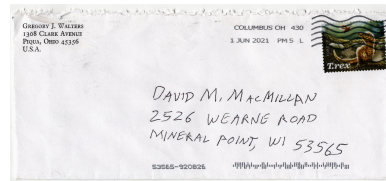 GREGORY J. WALTERS
1308 CLARK AVENUE
PIQUA, OHIO 45356
U.S.A.
COLUMBUS OH 430
1 JUN 2021 PM 5 L
T.rex
DAVID M. MACMILLAN
2526 WEARNE ROAD
MINERAL POINT, WI 53565
53565-920826